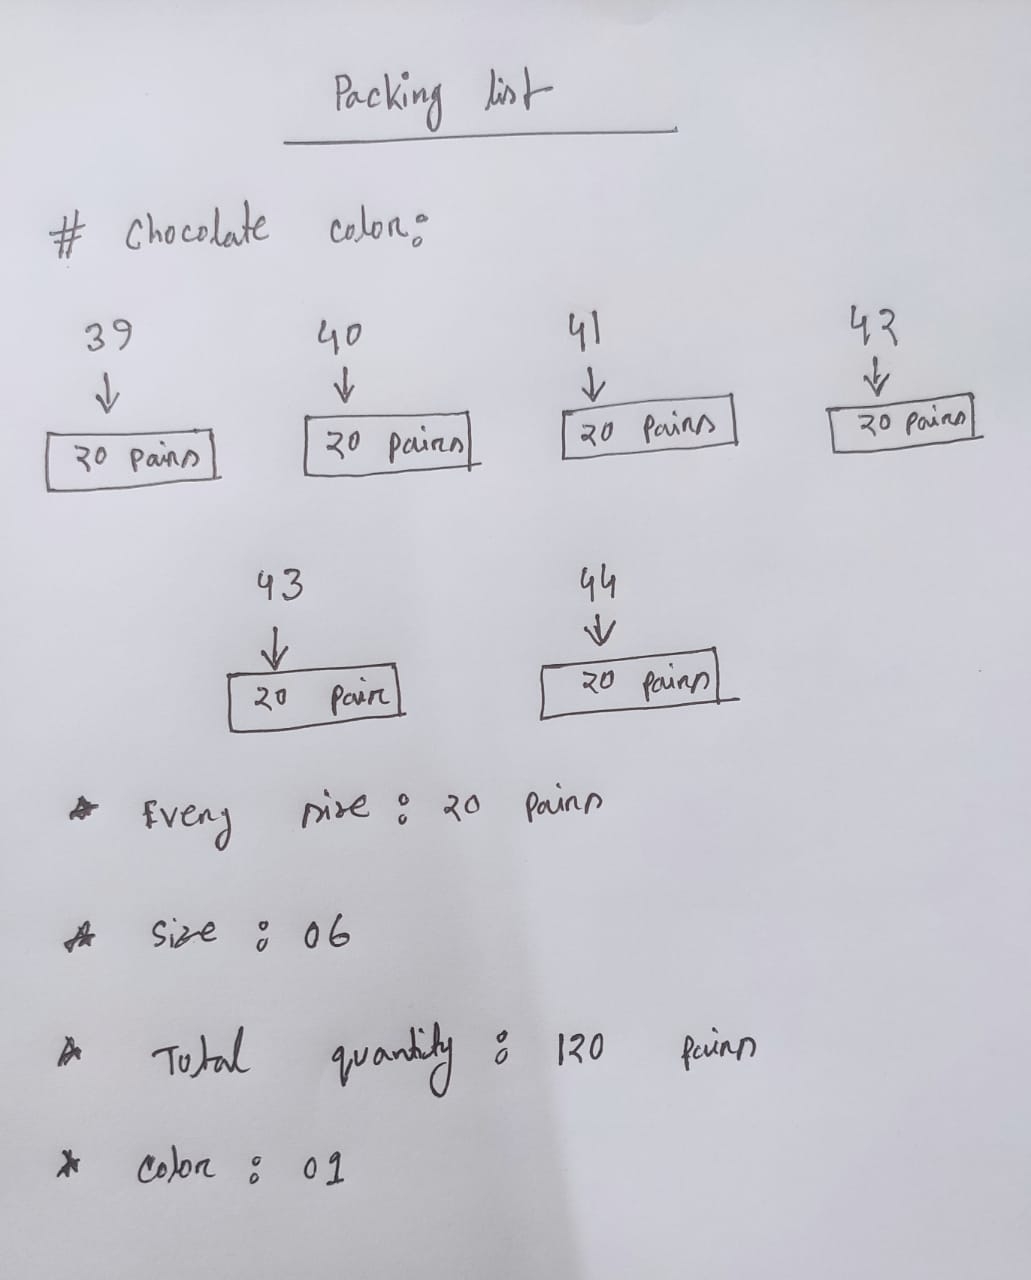 Packing list
# Chocolate color:
39 40 41 42
20 pairs 20 pairs 20 pairs 20 pairs
43 44
20 pair 20 pairs
* Every size : 20 pairs
* Size : 06
* Total quantity : 120 pairs
* Color : 01